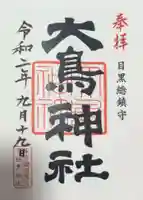 奉拝
目黒総鎮守
大鳥神社
令和二年九月十九日